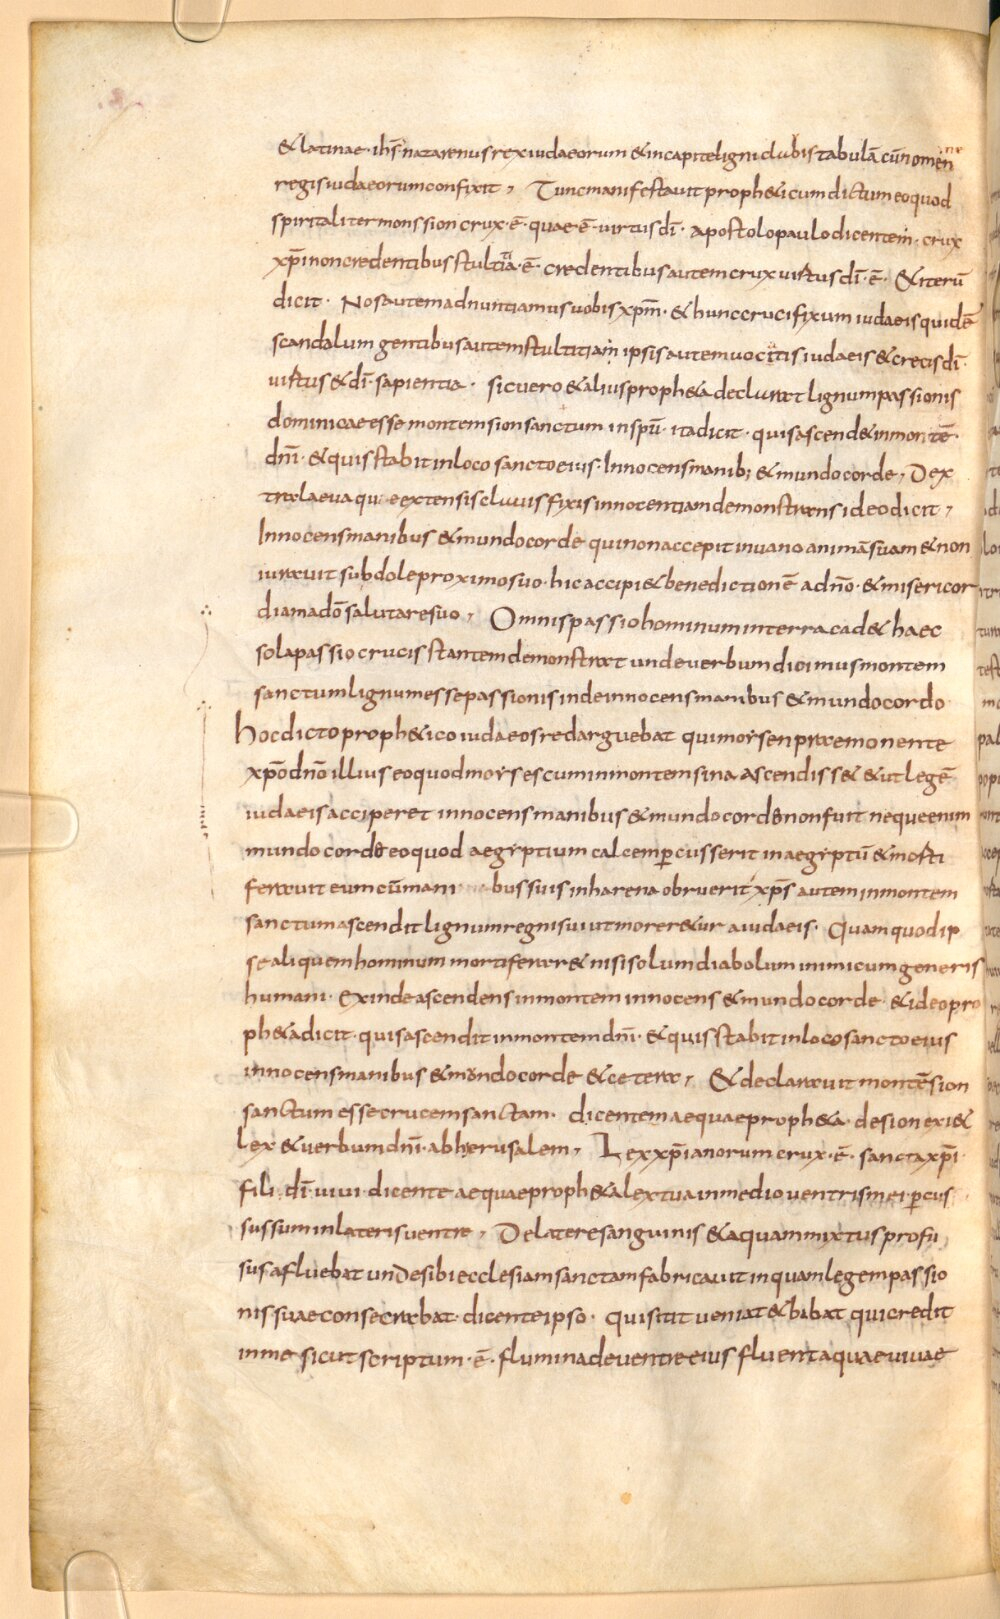 & latinae · ihs̄ · nazarenus rex iudaeorum & in capite ligni dubis tabulā cū nomen ne
regis iudaeorum confixit , Tunc manifestauit proph&icum dictum eo quod
spiritaliter mons sion crux · ē · quae · ē · uirtus dī · apostolo paulo dicentem · crux
xp̄i non credentibus stultitia · ē · credentibus autem crux uirtus dī · ē · & iterū
dicit · Nos autem adnuntiamus uobis xpm̄ · & hunc crucifixum iudaeis quidē
scandalum gentibus autem stultitiam ipsis autem uocitis iudaeis & crecis dī ·
uirtus & dī · sapientia · sic uero & alius proph&a declarat lignum passionis
dominicae esse montem sion sanctum in spū · ita dicit · quis ascend& in montē ·
dnī · & quis stabit in loco sancto eius · Innocens manib; & mundo corde , Dex
tra laeua que extensis clauis fixis innocentiam demonstrans ideo dicit ,
Innocens manibus & mundo corde qui non accepit in uano animā suam & non
iurauit subdole proximo suo · hic accipi& benedictionē a dnō · & misericor
diam a dō salutare suo , Omnis passio hominum in terra cad& haec
sola passio crucis stantem demonstrat unde uerbum dicimus montem
sanctum lignum esse passionis inde innocens manibus & mundo cordo
hoc dicto proph&ico iudaeos redarguebat qui moysen praemonente
xpō dnō illius eo quod moyses cum in montem sina ascendiss& & ut legē
iudaeis acciperet innocens manibus & mundo corde non fuit neque enim
mundo corde eo quod aegyptium calce percusserit in aegyptū & mosti
ferauit eum cū mani bus suis in harena obruerit xps̄ autem in montem
sanctum ascendit lignum regni sui ut morer&ur a iudaeis · Quam quod ip
se aliquem hominum mortiferar& nisi solum diabolum inimicum generis
humani · exinde ascendens in montem innocens & mundo corde & ideo pro
ph&a dicit · quis ascendit in montem dnī · & quis stabit in loco sancto eius
innocens manibus & mondo corde & cetera , & declarauit montē sion
sanctum esse crucem sanctam · dicentem aequae proph&a · de sion exi&
lex & uerbum dnī · ab herusalem , Lex xp̄ianorum crux · ē · sancta xp̄i ·
fili dī uiui · dicente aequae proph&a lex tua in medio uentris mei percus
sus sum in lateris uentre , De latere sanguinis & aquam mixtus profu
sus afluebat unde sibi ecclesiam sanctam fabricauit in quam legem passio
nis suae consecrabat · dicente ipso · qui sitit ueniat & bibat qui credit
in me sicut scriptum · ē · flumina de uentre eius fluent aquae uiuae